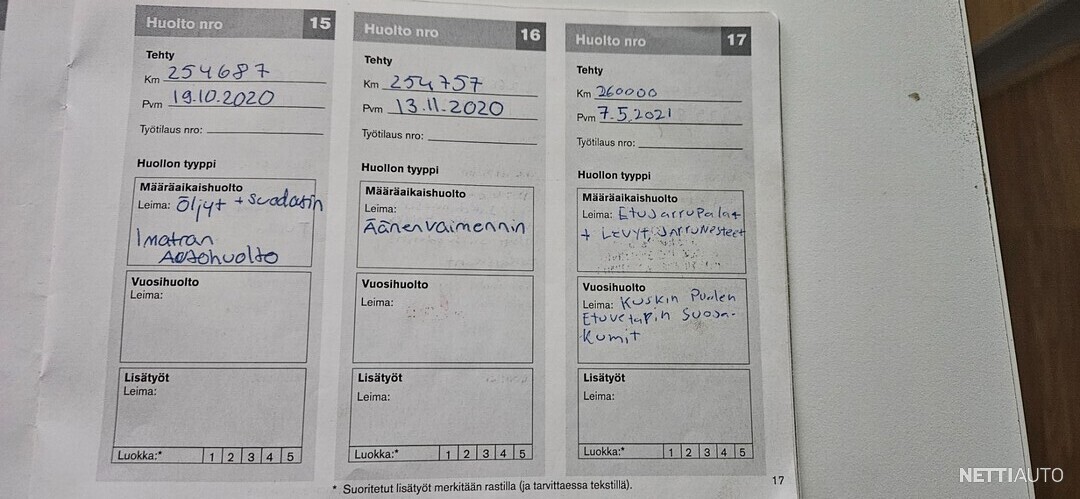 Huolto nro 15
Tehty
Km 254687
Pvm 19.10.2020
Työtilaus nro:
Huollon tyyppi
Määräaikaishuolto
Leima: Öljyt + suodatin
Imatran
Autohuolto
Vuosihuolto
Leima:
Lisätyöt
Leima:
Luokka:* 1 2 3 4 5
Huolto nro 16
Tehty
Km 254757
Pvm 13.11.2020
Työtilaus nro:
Huollon tyyppi
Määräaikaishuolto
Leima:
Äänenvaimennin
Vuosihuolto
Leima:
Lisätyöt
Leima:
Luokka:* 1 2 3 4 5
Huolto nro 17
Tehty
Km 260000
Pvm 7.5.2021
Työtilaus nro:
Huollon tyyppi
Määräaikaishuolto
Leima: Etujarrupalat
+ Levyt, Jarrunesteet
Vuosihuolto
Leima: Kuskin Puolen
Etuvetarin Suoja-
Kumit
Lisätyöt
Leima:
Luokka:* 1 2 3 4 5
* Suoritetut lisätyöt merkitään rastilla (ja tarvittaessa tekstillä).
17
NETTIAUTO